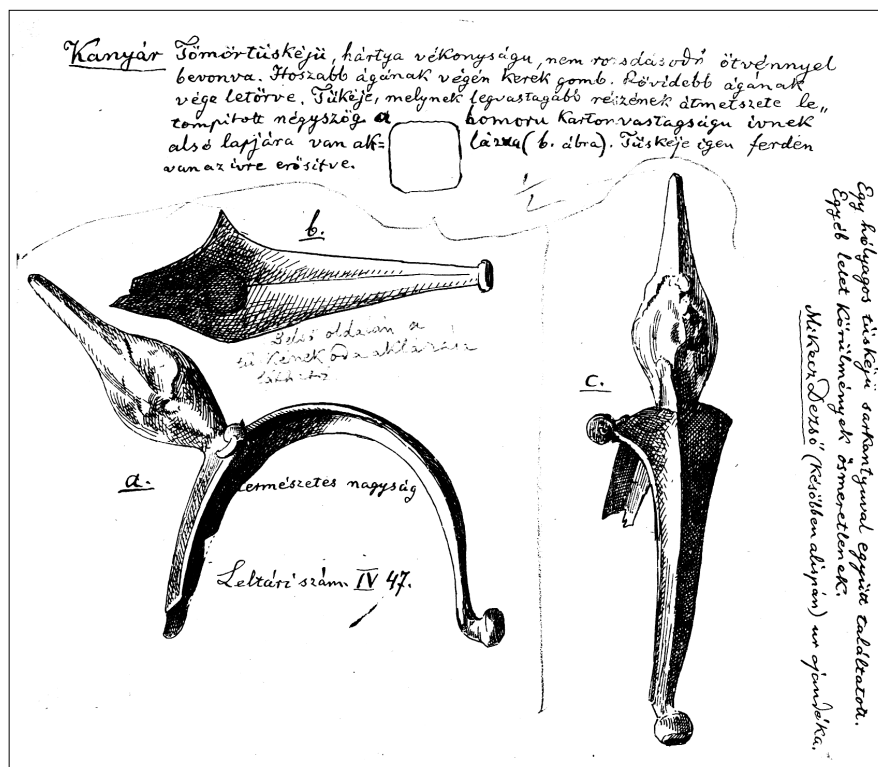 Kanyár Tömörtüskéjü, hártya vékonyságu, nem rozsdásodó ötvénnyel
bevonva. Hoszabb ágának végén kerek gomb. Rövidebb ágának
vége letörve. Tükéje, melynek legvastagabb részének átmetszete le„
tompitott négyszög a homoru kartonvastagságu ivnek
alsó lapjára van ak= lázva (b. ábra). Tüskéje igen ferdén
van az ivre erősitve.
1/1
b.
Belső oldalán a
tüskének oda akllázása
látható
a.
természetes nagyság
Leltári szám. IV 47.
c.
Egy hólyagos tüskéjü sarkantyuval együtt találtatott.
Egyéb lelet körülmények ösmeretlenek.
Mikecz Dezső (későbben alispán) ur ajándéka.